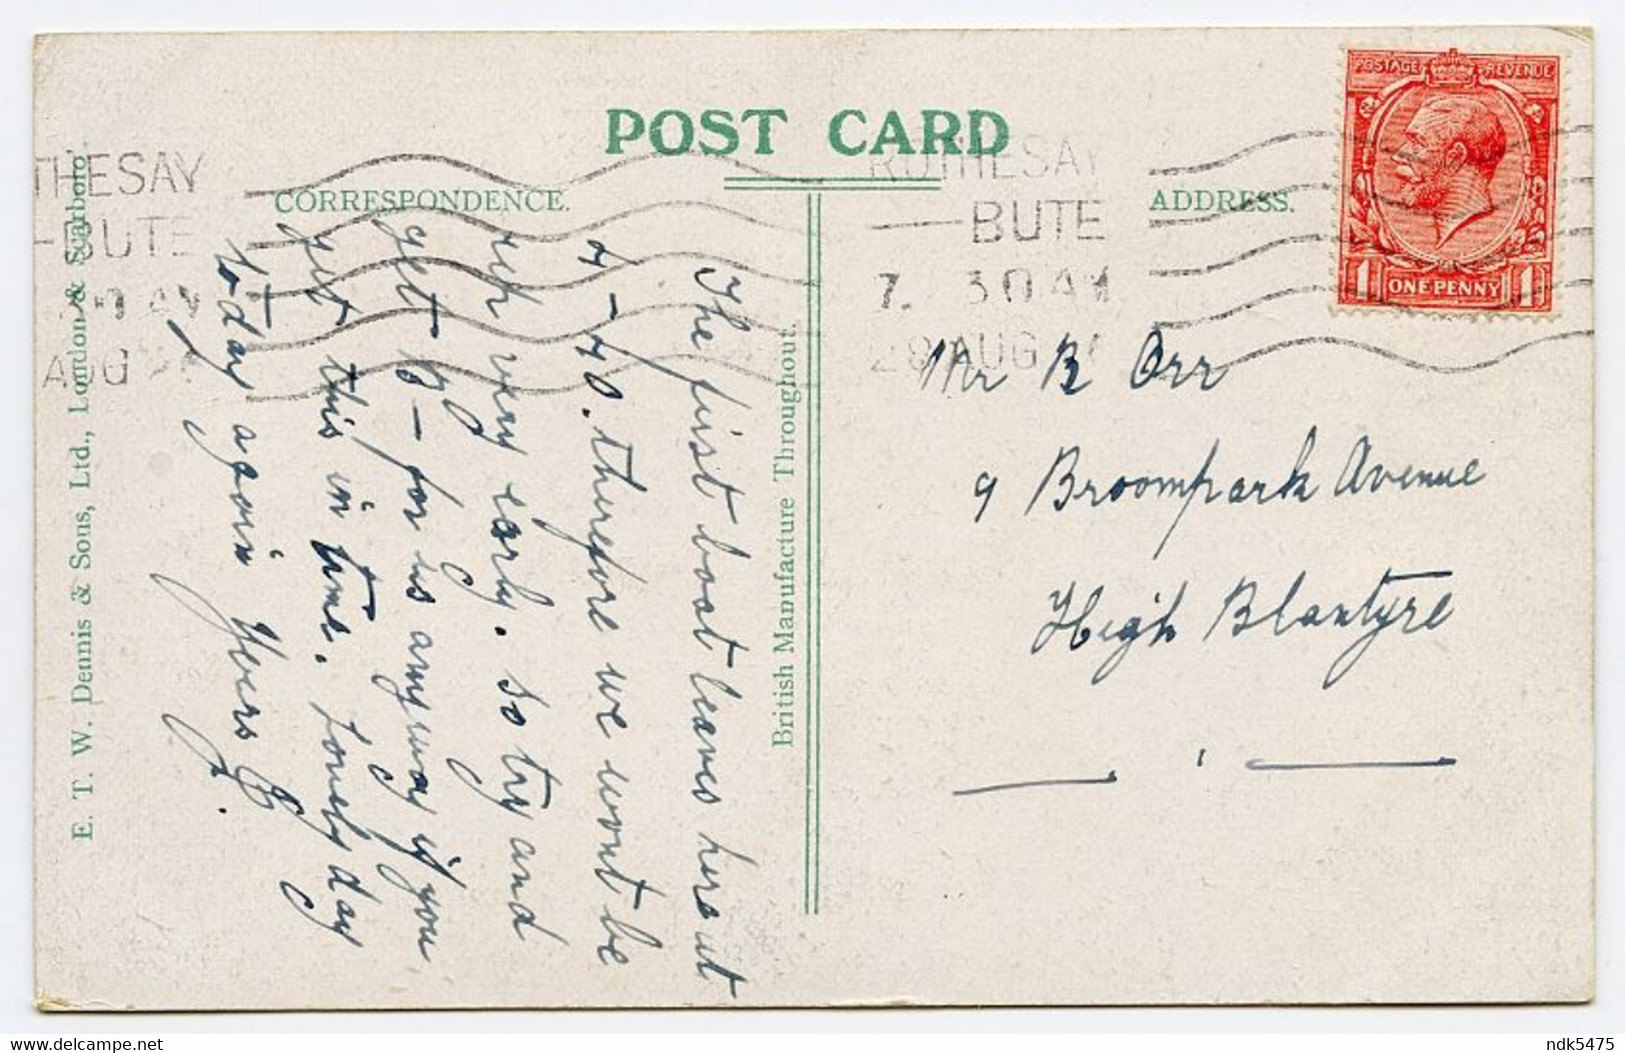 POST CARD
CORRESPONDENCE.
ADDRESS.
POSTAGE REVENUE
1 ONE PENNY 1
THESAY
BUTE
AUG
ROTHESAY
BUTE
7. 30 AM
28 AUG
Mr R Orr
9 Broompark Avenue
High Blantyre
The first boat leaves here at
7-70. therefore we wont be
up very early. So try and
get 8- for us anyway if you
get this in time. Lovely day
today again Yours
E. T. W. Dennis & Sons, Ltd., London & Scarboro'.
British Manufacture Throughout.
ndk5475